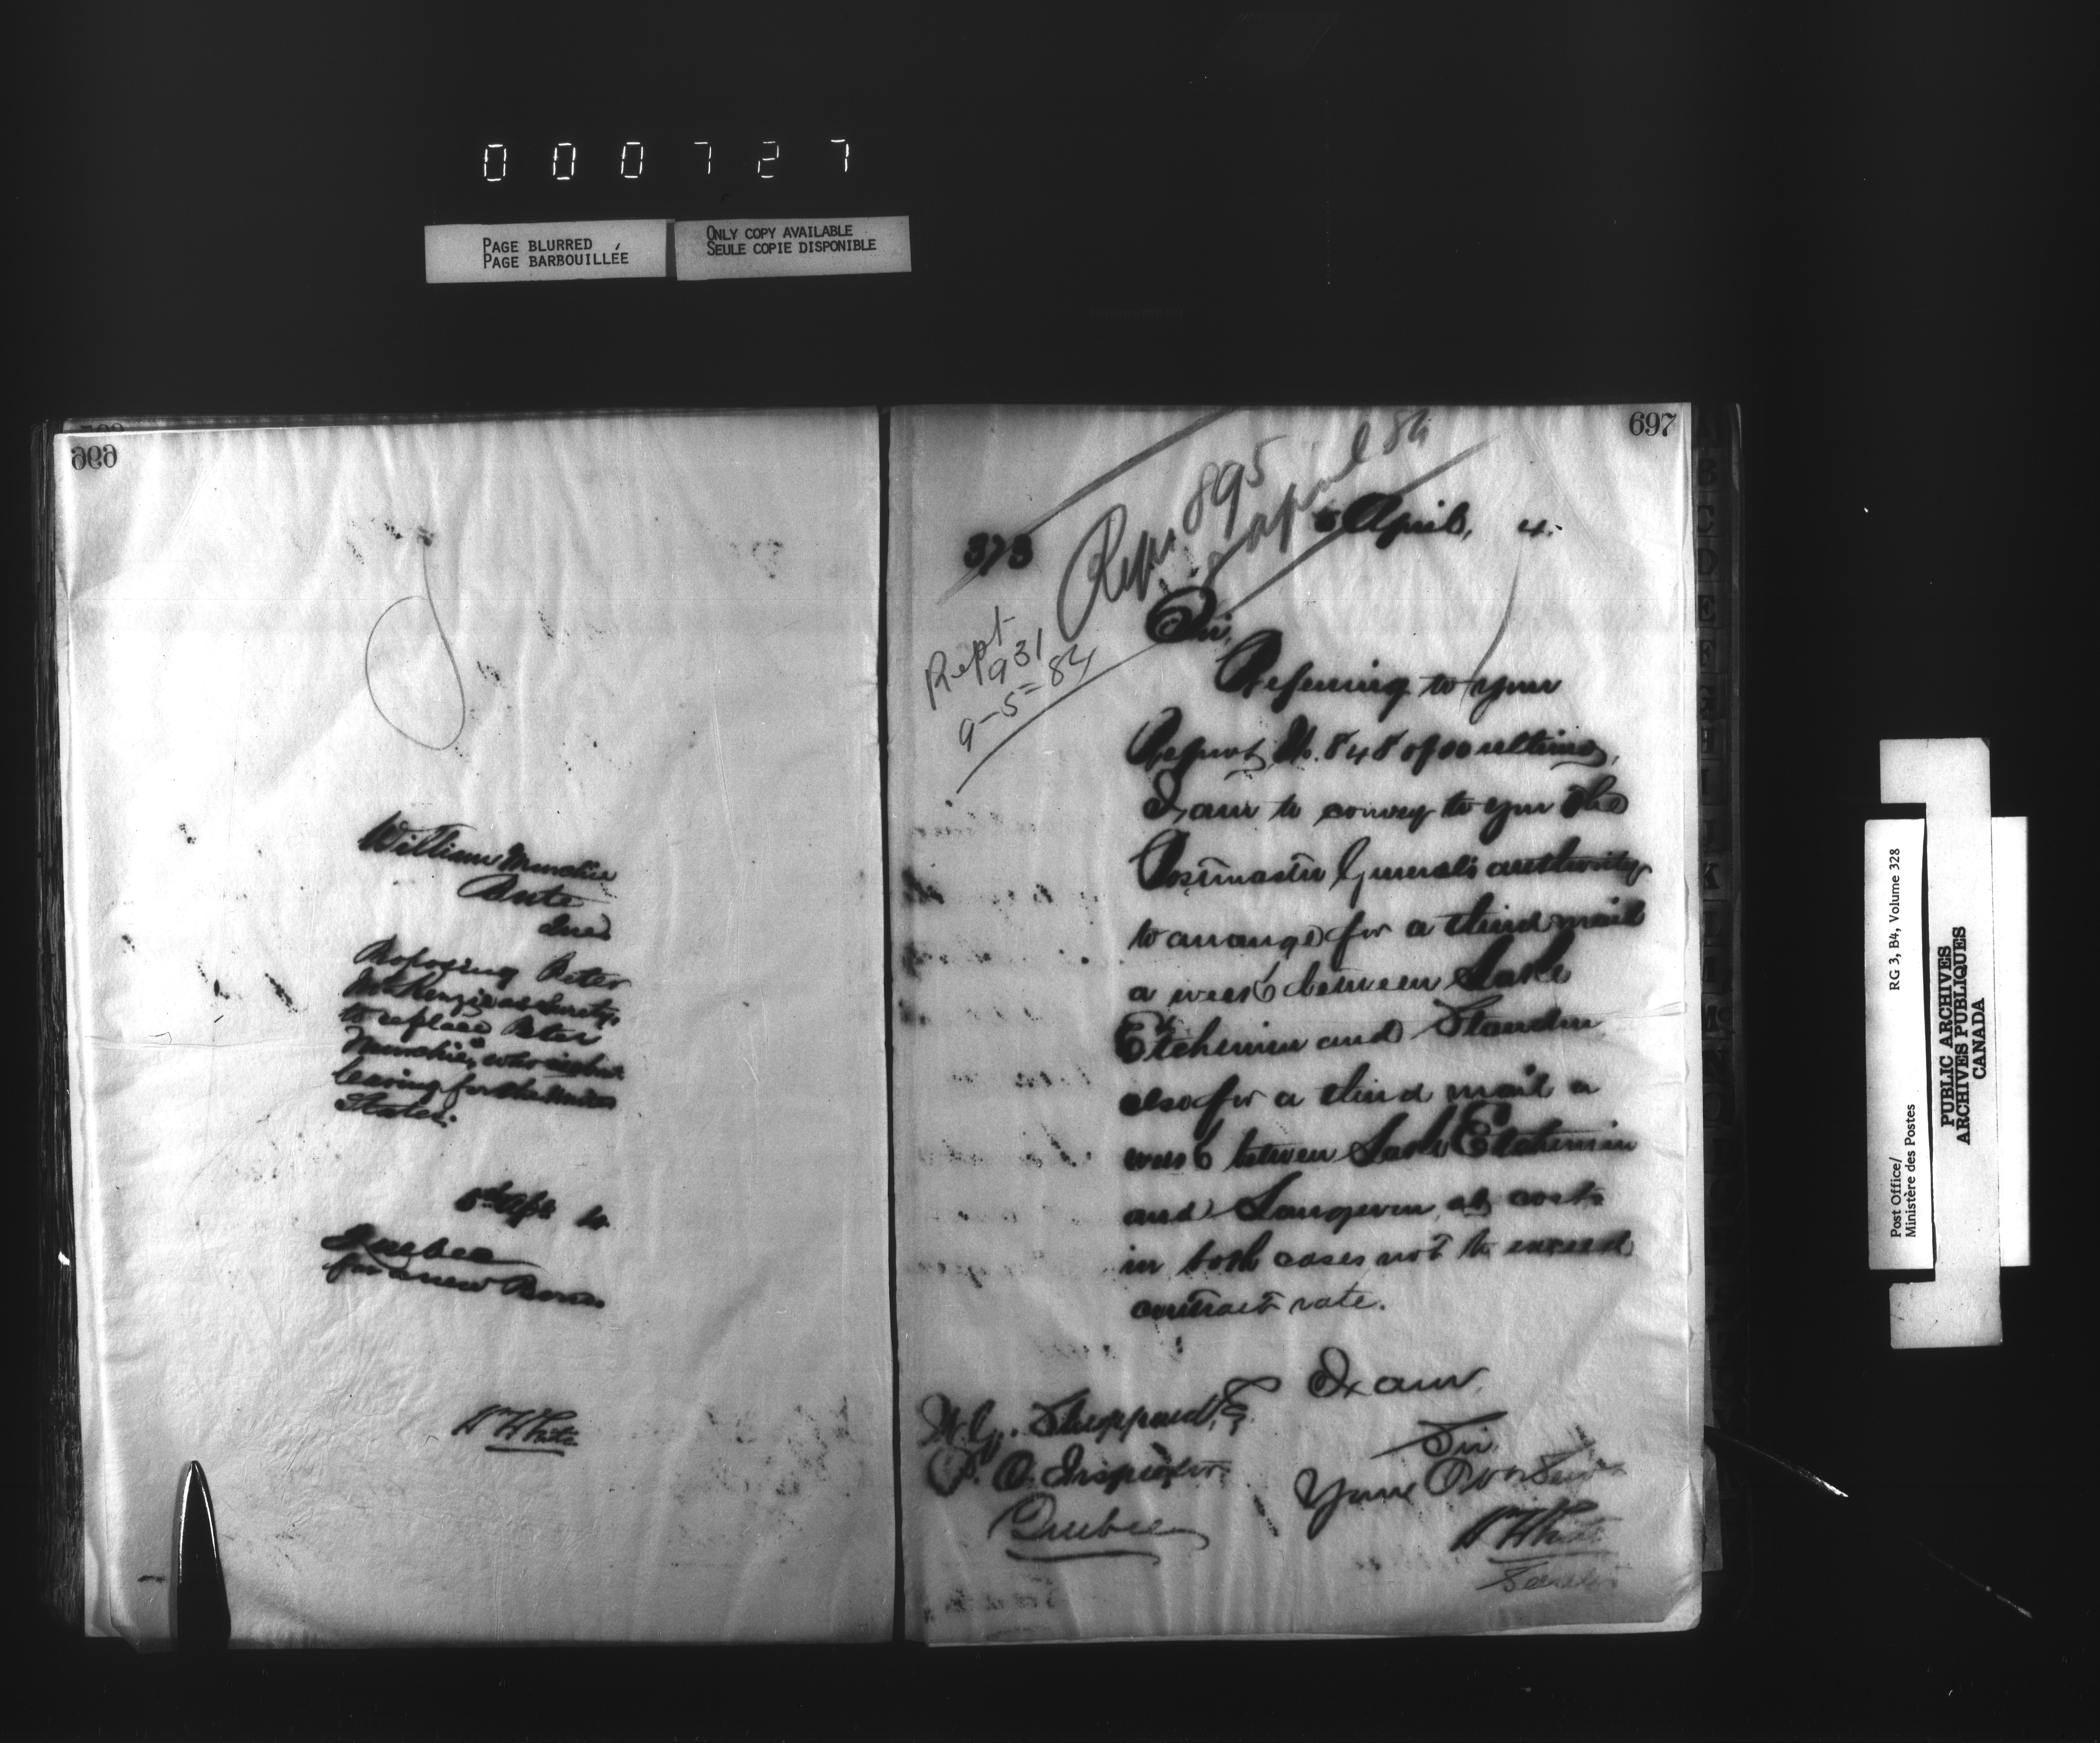 000727
PAGE BLURRED
PAGE BARBOUILLÉE
ONLY COPY AVAILABLE
SEULE COPIE DISPONIBLE
696
William
Bute
Que
Proposing Peter
McKenzie as Surety,
to replace Peter
who is about
leaving for the United
States.
5th Apl 4
Quebec
for a new Bond
W H White
697
373
Repn 895
April 84
5 April, 4.
Rept
931
9-5-84
Sir,
Referring to your
Report No. 848 of ultimo,
I am to convey to you the
Postmaster General's authority
to arrange for a third mail
a week between Lake
Etchemin and Standon
also for a third mail a
week between Lake Etchemin
and Langevin, at costs
in both cases not to exceed
contract rate.
I am,
Sir
Your Obt Servt
W H White
Secretary
W. G. Sheppard, E
P. O. Inspector
Quebec
Post Office/
Ministère des Postes
RG 3, B4, Volume 328
PUBLIC ARCHIVES
ARCHIVES PUBLIQUES
CANADA